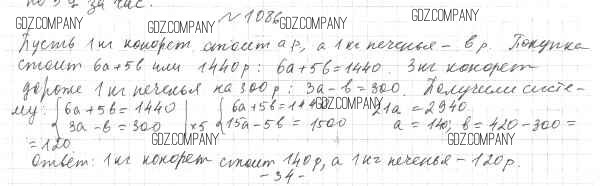 по 5 д за час.
GDZ.COMPANY GDZ.COMPANY №1086 GDZ.COMPANY
Пусть 1 кг конфет стоит a р, а 1 кг печенья – b р. Покупка
стоит 6a+5b или 1440 р: 6a+5b=1440. 3 кг конфет
дороже 1 кг печенья на 300 р: 3a-b=300. Получим систе-
му: { 6a+5b=1440 { 6a+5b=1440 GDZ.COMPANY 21a=2940
3a-b=300 |×5 15a-5b=1500 a=140; b=420-300=
=120 GDZ.COMPANY GDZ.COMPANY
Ответ: 1 кг конфет стоит 140 р, а 1 кг печенья – 120 р.
-34-